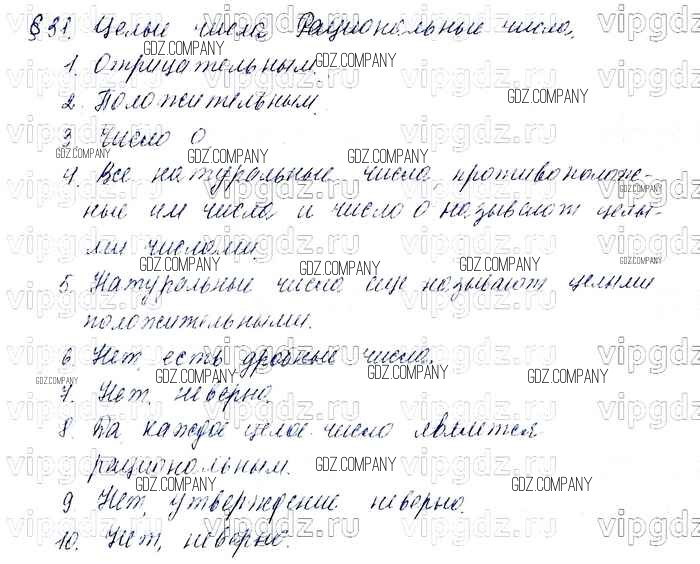 §31. Целые числа. Рациональные числа.
1. Отрицательным.
2. Положительным.
3. Число 0.
4. Все натуральные числа, противополож-
ные им числа и число 0 называют целы-
ми числами.
5. Натуральные числа еще называют целыми
положительными.
6. Нет, есть дробные числа.
7. Нет, неверно.
8. Да каждое целое число является
рациональным.
9. Нет, утверждение неверно.
10. Нет, неверно.
GDZ.COMPANY
vipgdz.ru